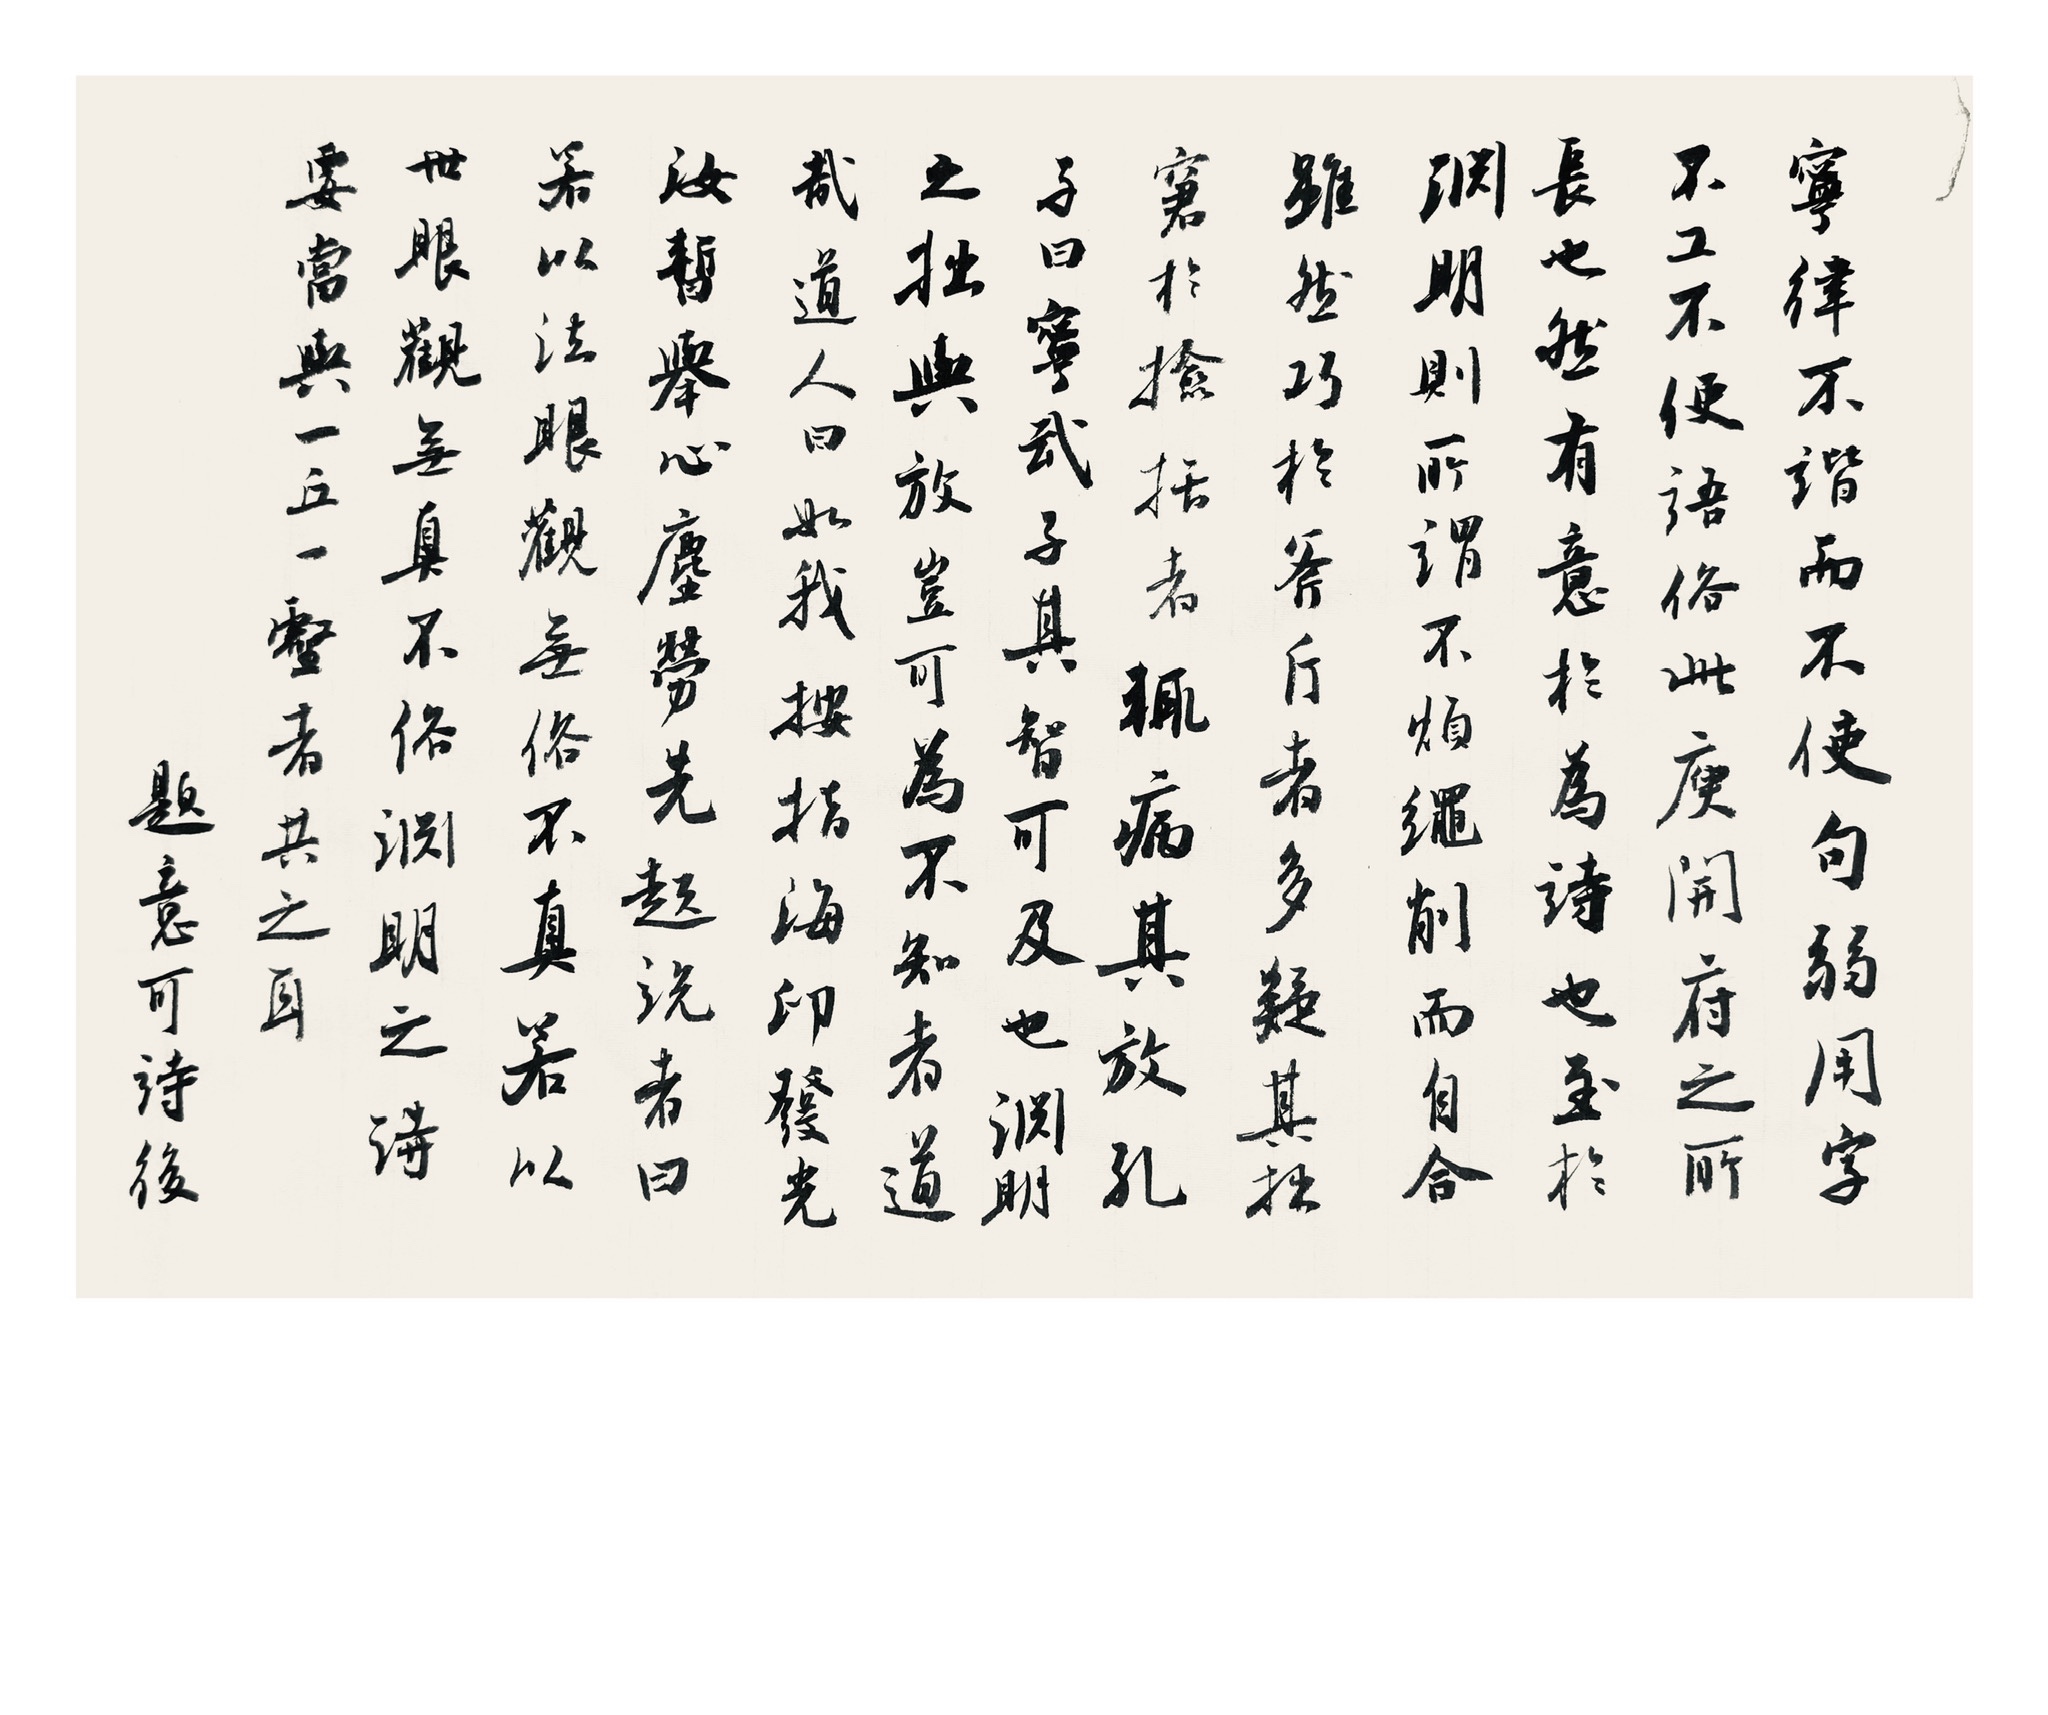 寧律不諧而不使句弱用字
不工不使語俗此庾開府之所
長也然有意於為詩也至於
淵明則所謂不煩繩削而自合
雖然巧於斧斤者多疑其拙
窘於撿括者輒病其放孔
子曰寧武子其智可及也淵明
之拙與放豈可為不知者道
哉道人曰如我按指海印發光
汝暫舉心塵勞先起說者曰
若以法眼觀無俗不真若以
世眼觀無真不俗淵明之詩
要當與一丘一壑者共之耳
題意可詩後